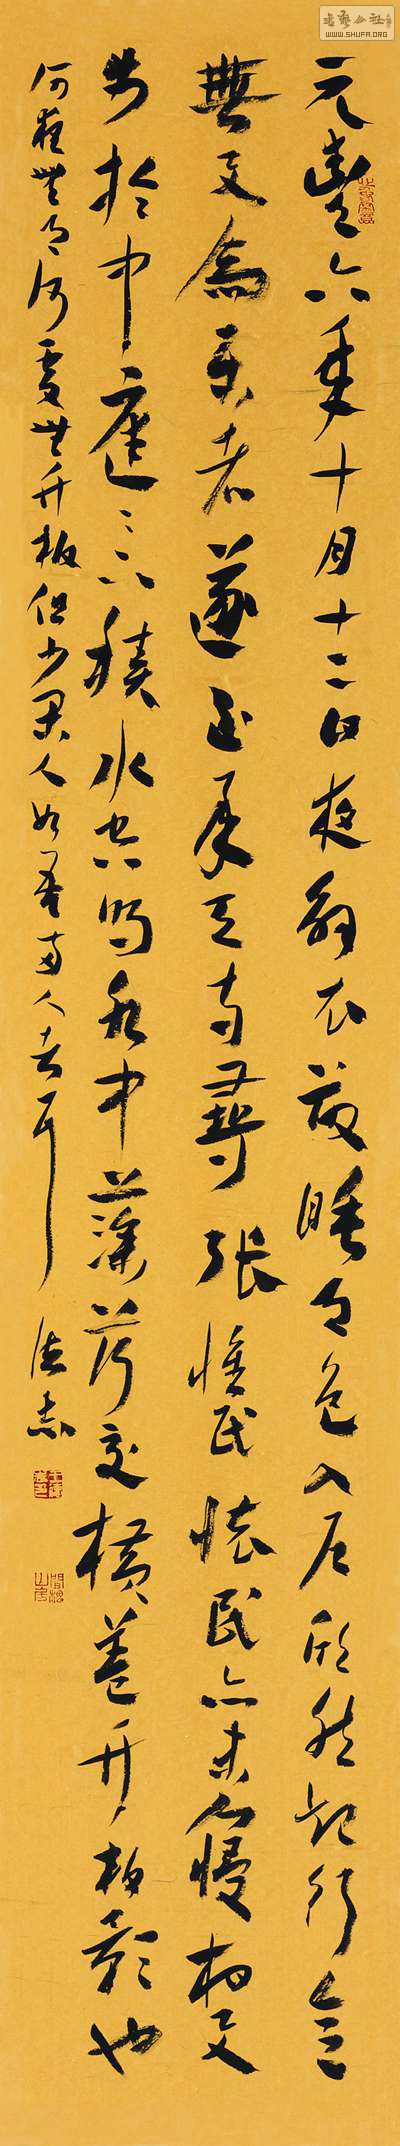 书艺公社
WWW.SHUFA.ORG
元豐六年十月十二日夜解衣欲睡月色入戶欣然起行念
無与為樂者遂至承天寺尋張懷民懷民亦未寢相与
步於中庭〻下積水空明水中藻荇交橫蓋竹柏影也
何夜無月何處無竹柏但少閑人如吾兩人者耳 德志